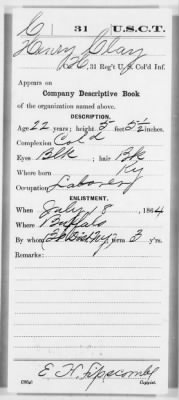 C 31 U.S.C.T.
Henry Clay
31 Reg't U.S. Col'd Inf.
Appears on
Company Descriptive Book
of the organization named above.
DESCRIPTION.
Age 22 years; height 5 feet 5½ inches.
Complexion Col'd
Eyes Blk ; hair Blk
Where born Ky
Occupation Laborer
ENLISTMENT.
When July 8 , 1864
Where Buffalo
By whom N.Y.; term 3 y'rs.
Remarks:
E. H. Lipscomb
Copyist.